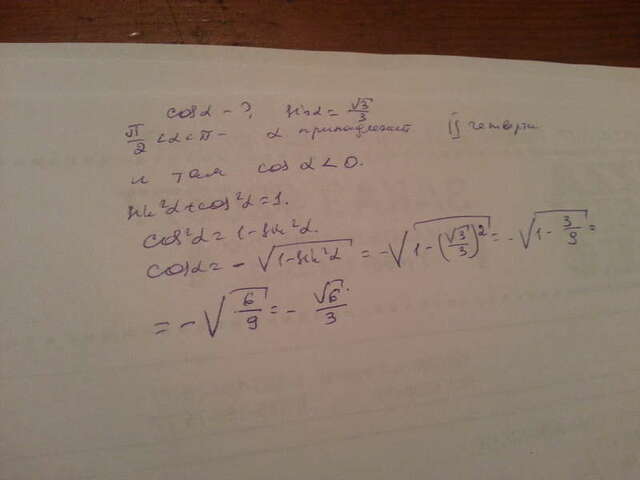 cosα - ? sinα = √3/3
π/2 < α < π - α принадлежит II четверти
и там cos α < 0.
sin²α + cos²α = 1.
cos²α = 1 - sin²α.
cosα = - √(1 - sin²α) = - √(1 - (√3/3)²) = - √(1 - 3/9) =
= - √(6/9) = - √6/3.